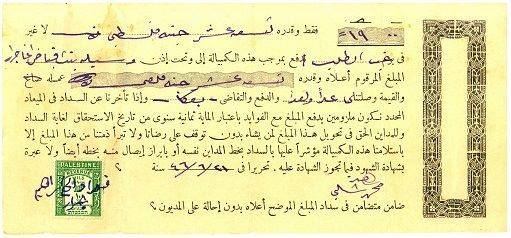 ١٩
فقط وقدره تسعة عشر جنيه فلسطيني فقط لا غير
في حين الطلب ادفع بموجب هذه الكمبيالة إلى وتحت إذن
المبلغ المرقوم أعلاه وقدره تسعة عشر جنيه فلسطيني عملة
والقيمة وصلتني عدا ونقدا والدفع والتقاضي وإذا تأخرنا عن السداد في الميعاد
المحدد نكون ملزومين بدفع المبلغ مع الفوايد باعتبار الماية ثمانية سنوي من تاريخ الاستحقاق لغاية السداد
وللمداين الحق في تحويل هذا المبلغ لمن يشاء بدون توقف على رضانا ولا تبرأ ذمتنا من هذا المبلغ إلا
باستلامنا هذه الكمبيالة مؤشراً عليها بالسداد بخط المداين نفسه أو بابراز إيصال منه بخطه أيضاً ولا عبرة
بشهادة الشهود فيما تجوز الشهادة عليه . تحريراً في سنة ؟
PALESTINE
ضامن متضامن في سداد المبلغ الموضح أعلاه بدون إحالة على المديون ؟